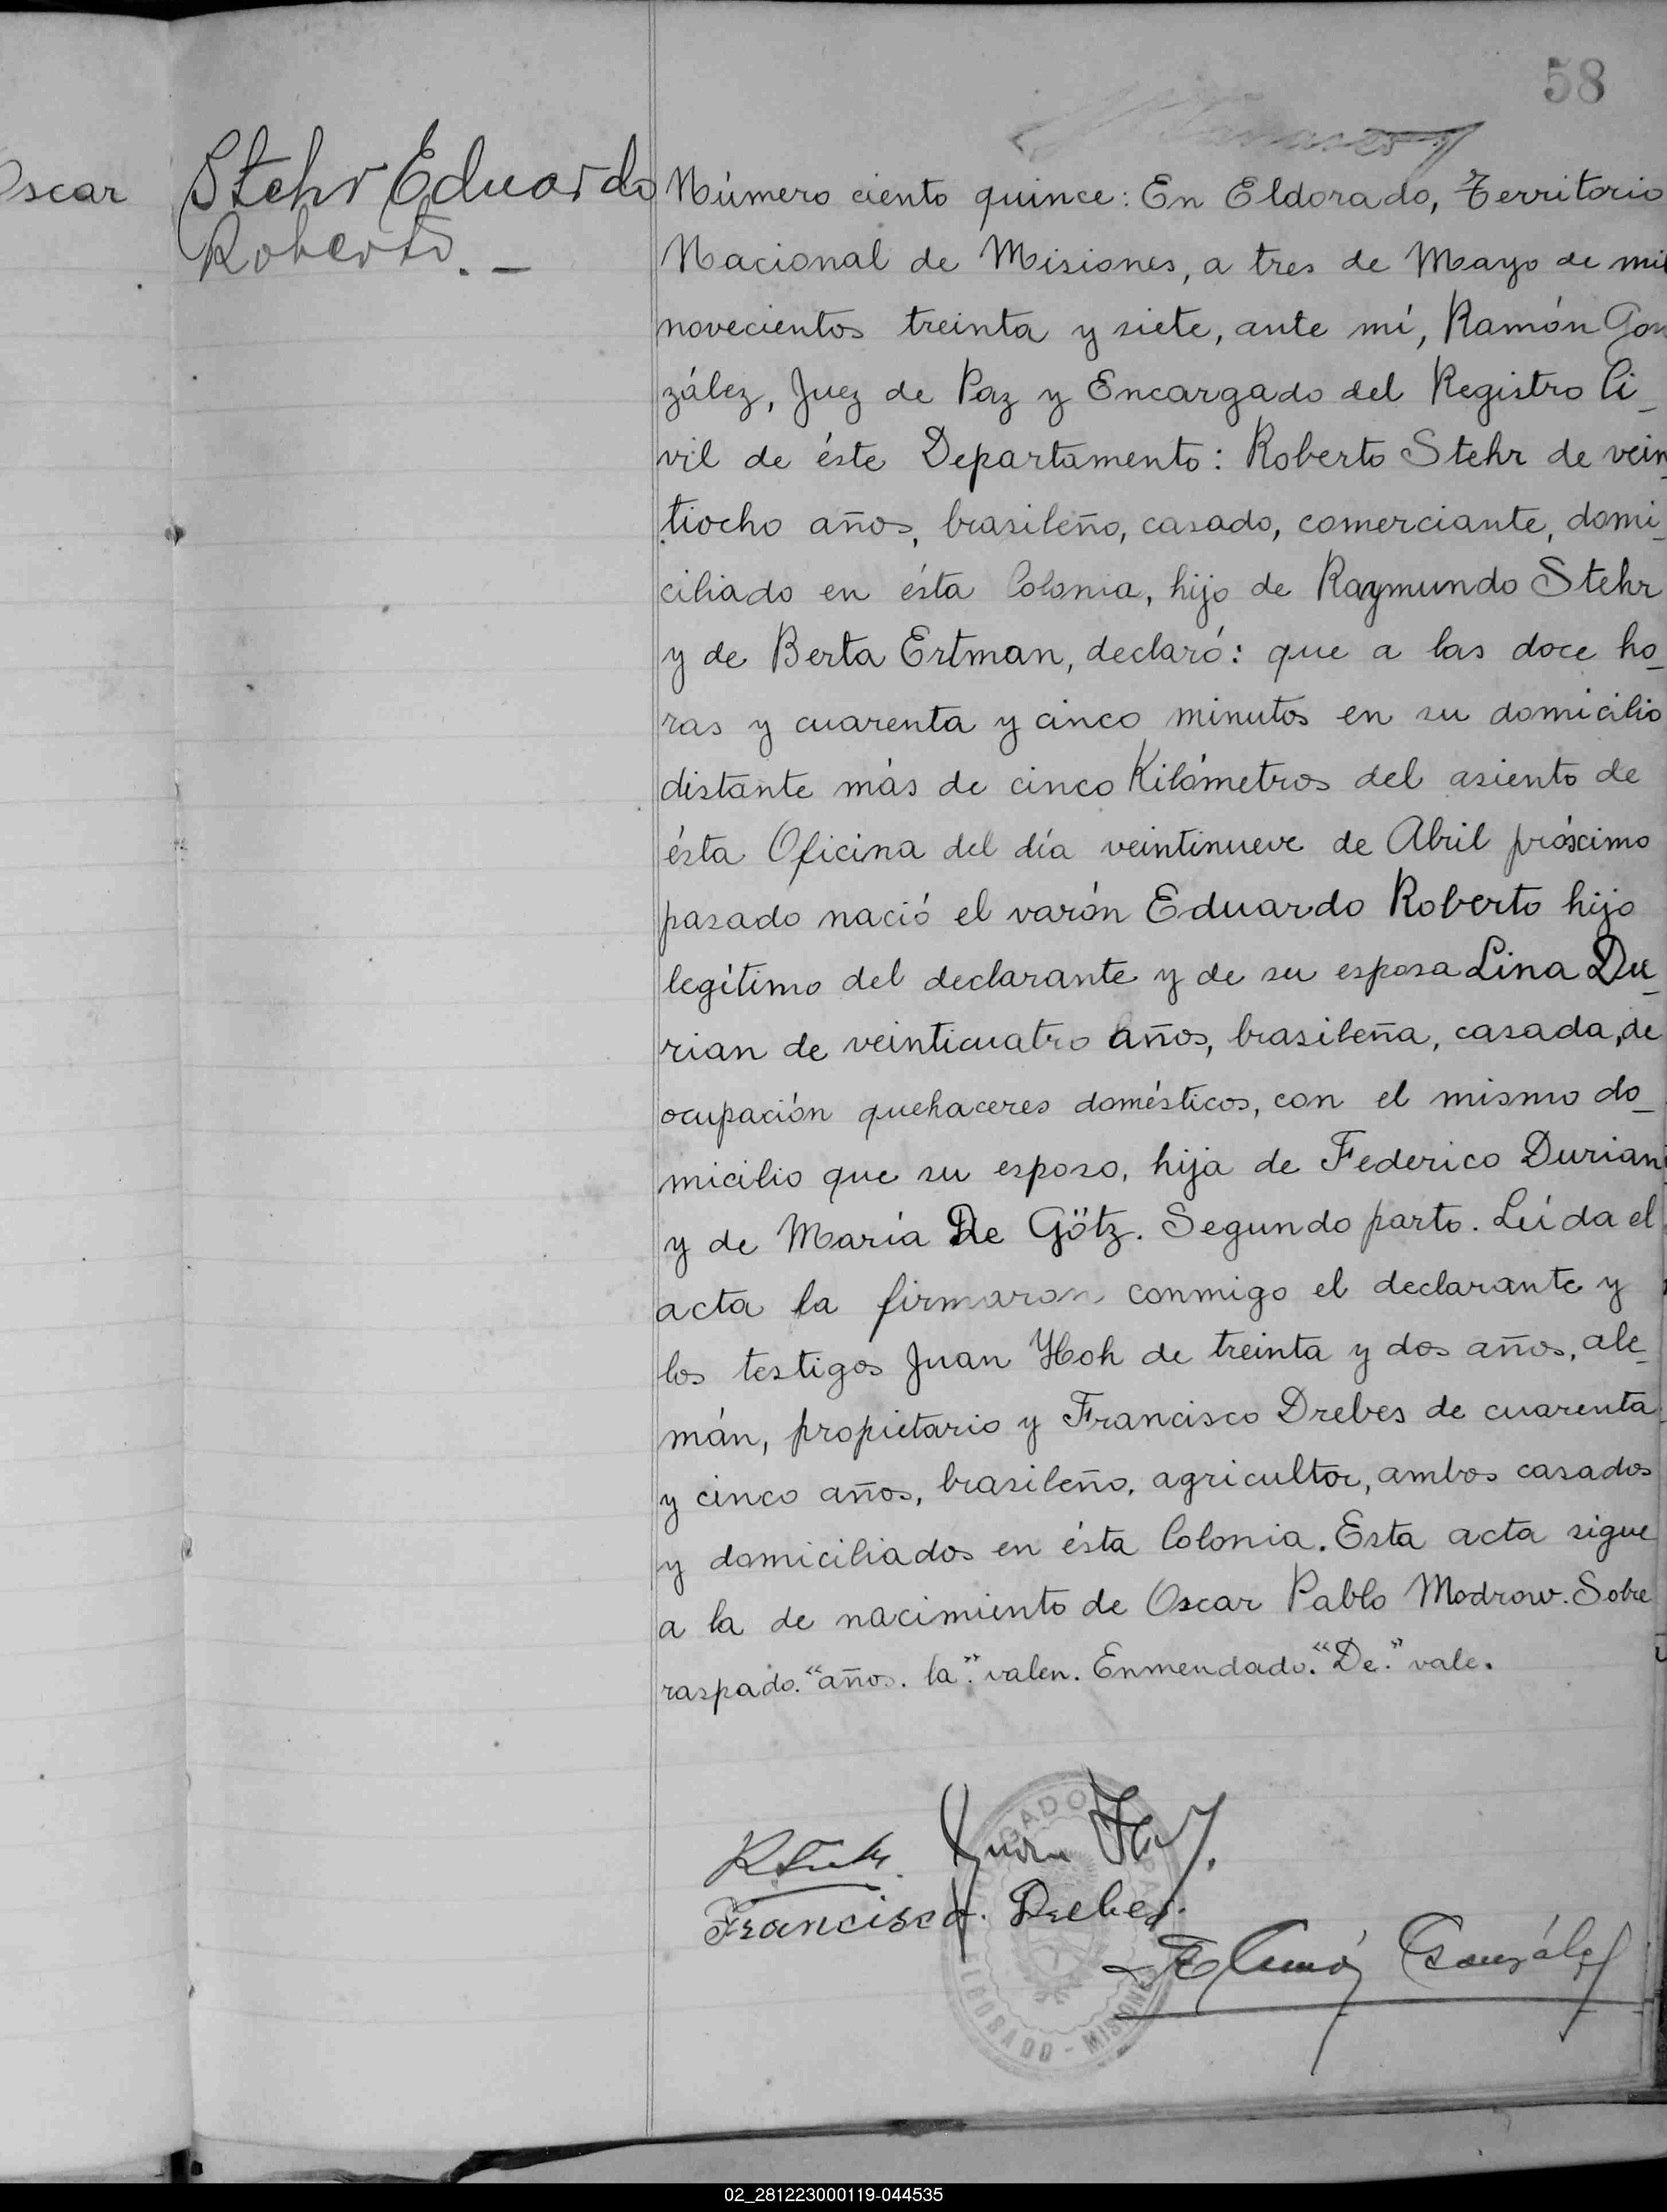 58
Oscar
Stehr Eduardo
Roberto. _
Número ciento quince: En Eldorado, Territorio
Nacional de Misiones, a tres de Mayo de mil
novecientos treinta y siete, ante mí, Ramón Gon
zález, Juez de Paz y Encargado del Registro Ci_
vil de éste Departamento: Roberto Stehr de vein_
tiocho años, brasileño, casado, comerciante, domi_
ciliado en ésta Colonia, hijo de Raymundo Stehr
y de Berta Ertman, declaró: que a las doce ho_
ras y cuarenta y cinco minutos en su domicilio
distante más de cinco Kilómetros del asiento de
ésta Oficina del día veintinueve de Abril próximo
pasado nació el varón Eduardo Roberto hijo
legítimo del declarante y de su esposa Lina Du_
rian de veinticuatro años, brasileña, casada, de
ocupación quehaceres domésticos, con el mismo do_
micilio que su esposo, hija de Federico Durian
y de María De Götz. Segundo parto. Leída el
acta la firmaron conmigo el declarante y
los testigos Juan Hoh de treinta y dos años, ale_
mán, propietario y Francisco Drebes de cuarenta
y cinco años, brasileño, agricultor, ambos casados
y domiciliados en ésta Colonia. Esta acta sigue
a la de nacimiento de Oscar Pablo Modrow. Sobre
raspado. "años. la". valen. Enmendado. "De." vale.
Juan
Francisco Drebes.
Ramón González
ELDORADO - MISIONES
02_281223000119-044535